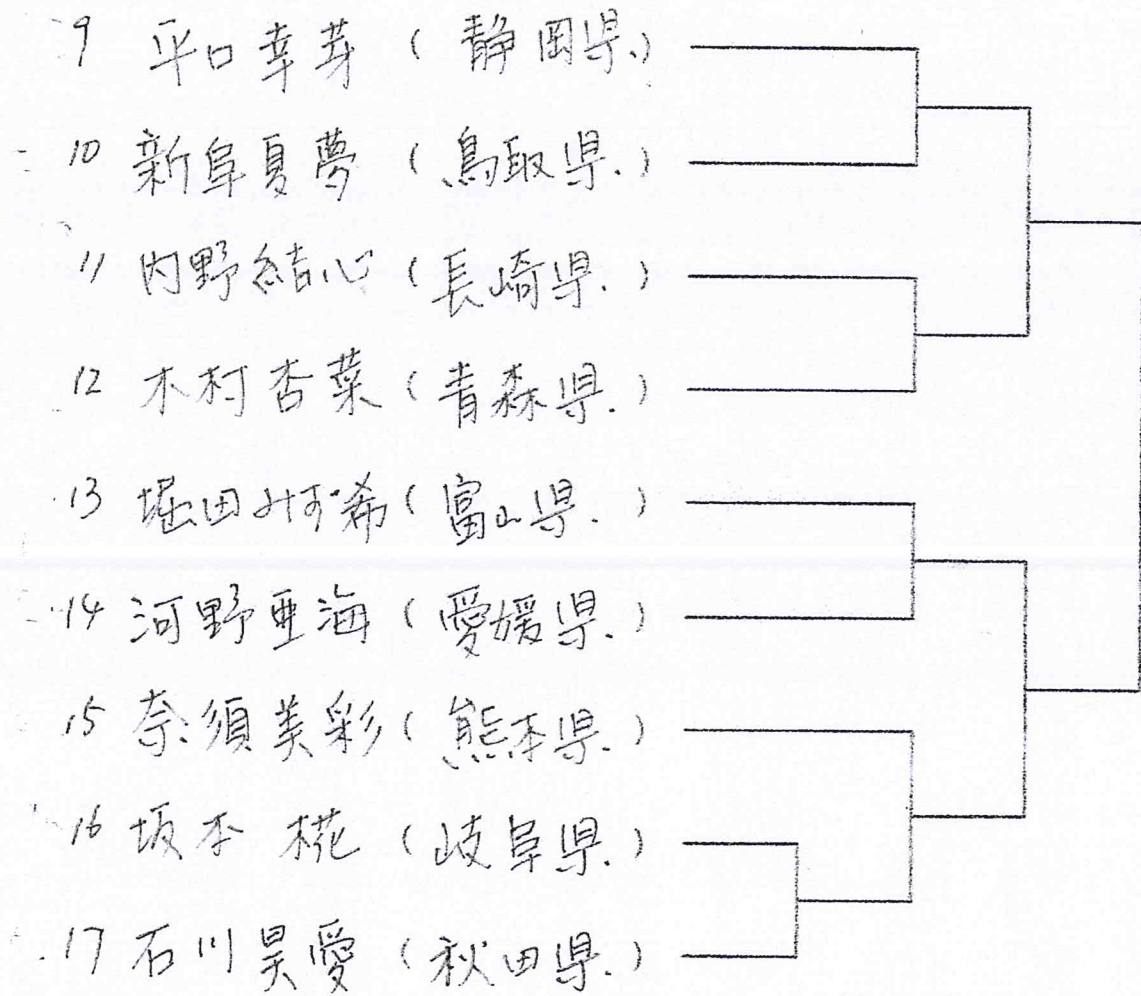 9 平口幸芽 (静岡県)
10 新阜夏夢 (鳥取県)
11 内野結心 (長崎県)
12 木村杏菜 (青森県)
13 堀田みず希 (富山県)
14 河野亜海 (愛媛県)
15 奈須美彩 (熊本県)
16 坂本 椛 (岐阜県)
17 石川昊愛 (秋田県)